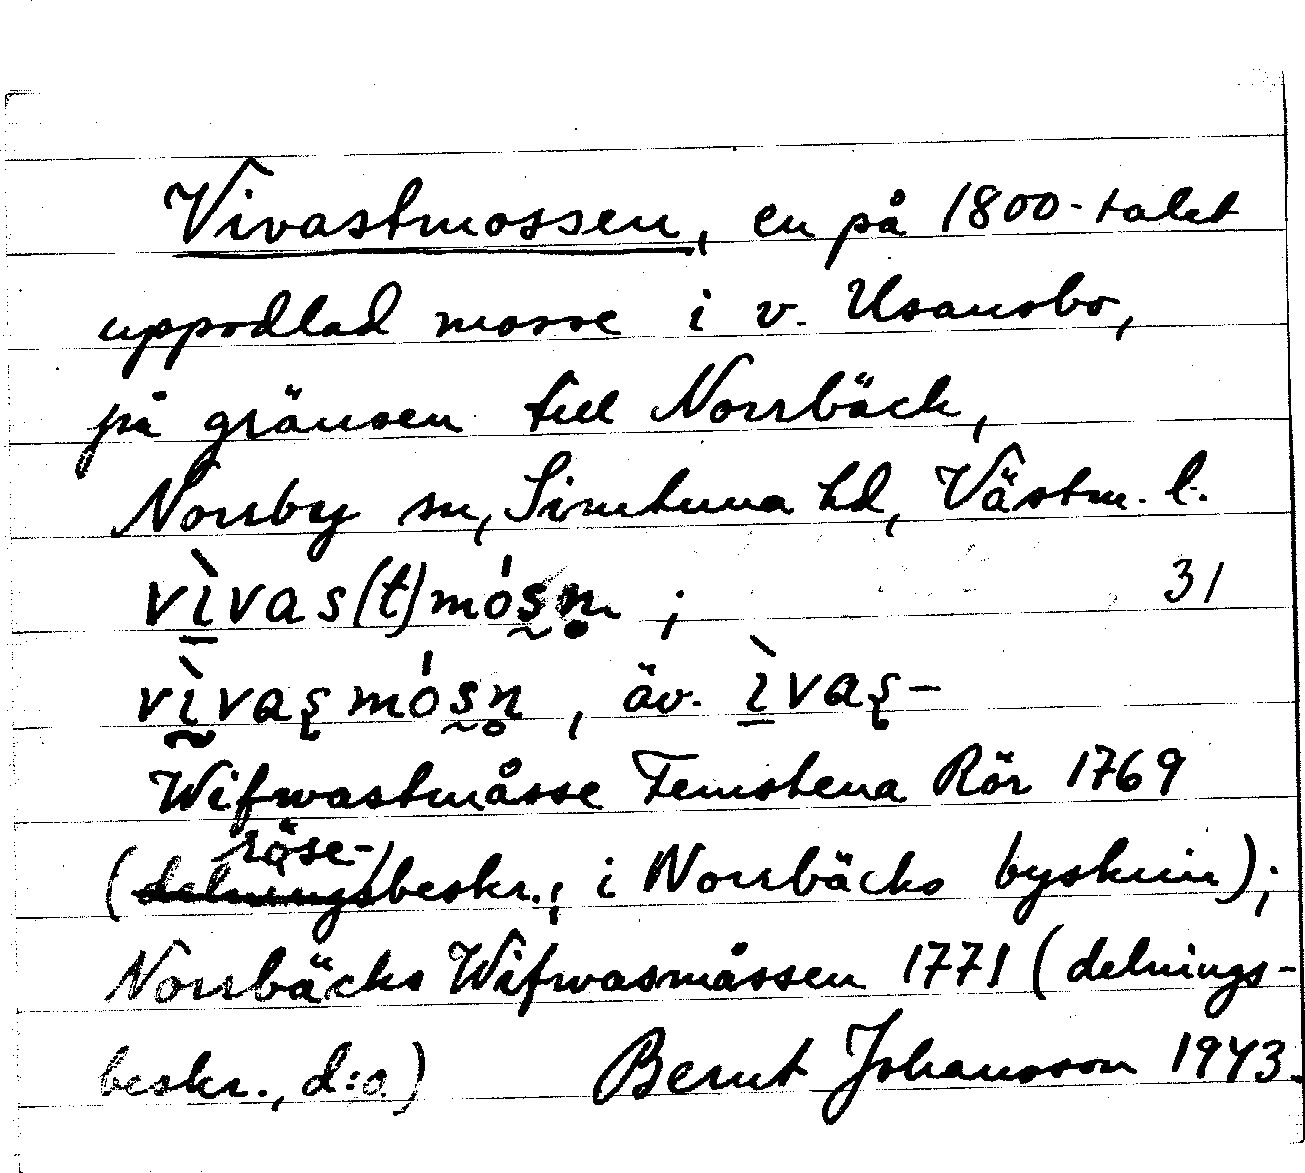 Vivastmossen, en på 1800-talet
uppodlad mosse i v. Usansbo,
på gränsen till Norrbäck,
Norrby sn, Simtuna hd, Västm. l.
vìvas(t)mósn̥ ; 31
vìvaʂmósn̥, äv. ìvaʂ-
Wifwastmåsse Femstena Rör 1769
(röse-beskr., i Norrbäcks byskrin);
Norrbäcks Wifwasmåssen 1771 (delnings-
beskr., d:o.) Bernt Johansson 1943.